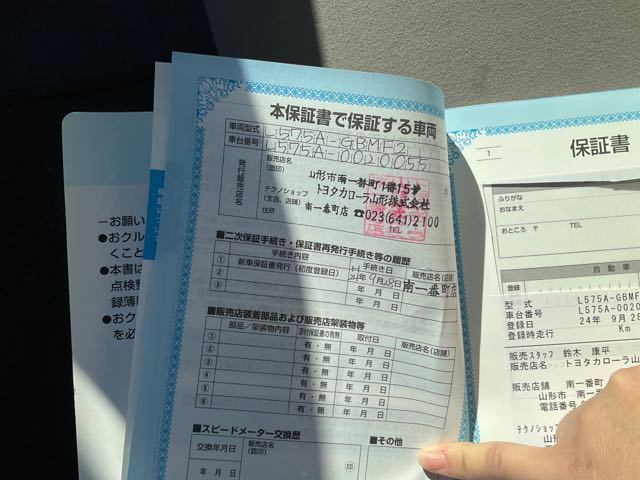 本保証書で保証する車両
車両型式 L575A-GBMF2
車台番号 L575A-0020055
発行販売店名
販売店名
(認印)
山形市南一番町1番15号
トヨタカローラ山形株式会社
テクノショップ
(支店、店舗)
南一番町店 ☎023(641)2100
住所
TEL
■二次保証手続き・保証書再発行手続き等の履歴
手続き内容 手続き日 販売店名(店舗)
① 新車保証書発行(初度登録日) 24年9月28日 南一番町店
② 年 月 日
③ 年 月 日
■販売店装着部品および販売店架装物等
部品/架装物内容 添付保証書の有無 取付日 販売店名(店舗)
① 有・無 年 月 日
② 有・無 年 月 日
③ 有・無 年 月 日
④ 有・無 年 月 日
⑤ 有・無 年 月 日
⑥ 有・無 年 月 日
■スピードメーター交換歴
交換年月日 販売店名
(認印)
年 月 日 印
■その他
一お願い
●おクル
くこと
●本書は
点検整
録簿
●おク
を必
1
保証書
ふりがな
おなまえ
おところ 〒 TEL
自動車
登録
型式 L575A-GBMF
車台番号 L575A-0020
登録日 24年 9月 28
登録時走行 Km
販売スタッフ 鈴木 康平
販売店名 トヨタカローラ山
販売店舗 南一番町
山形市 南一
電話番号
テクノショップ